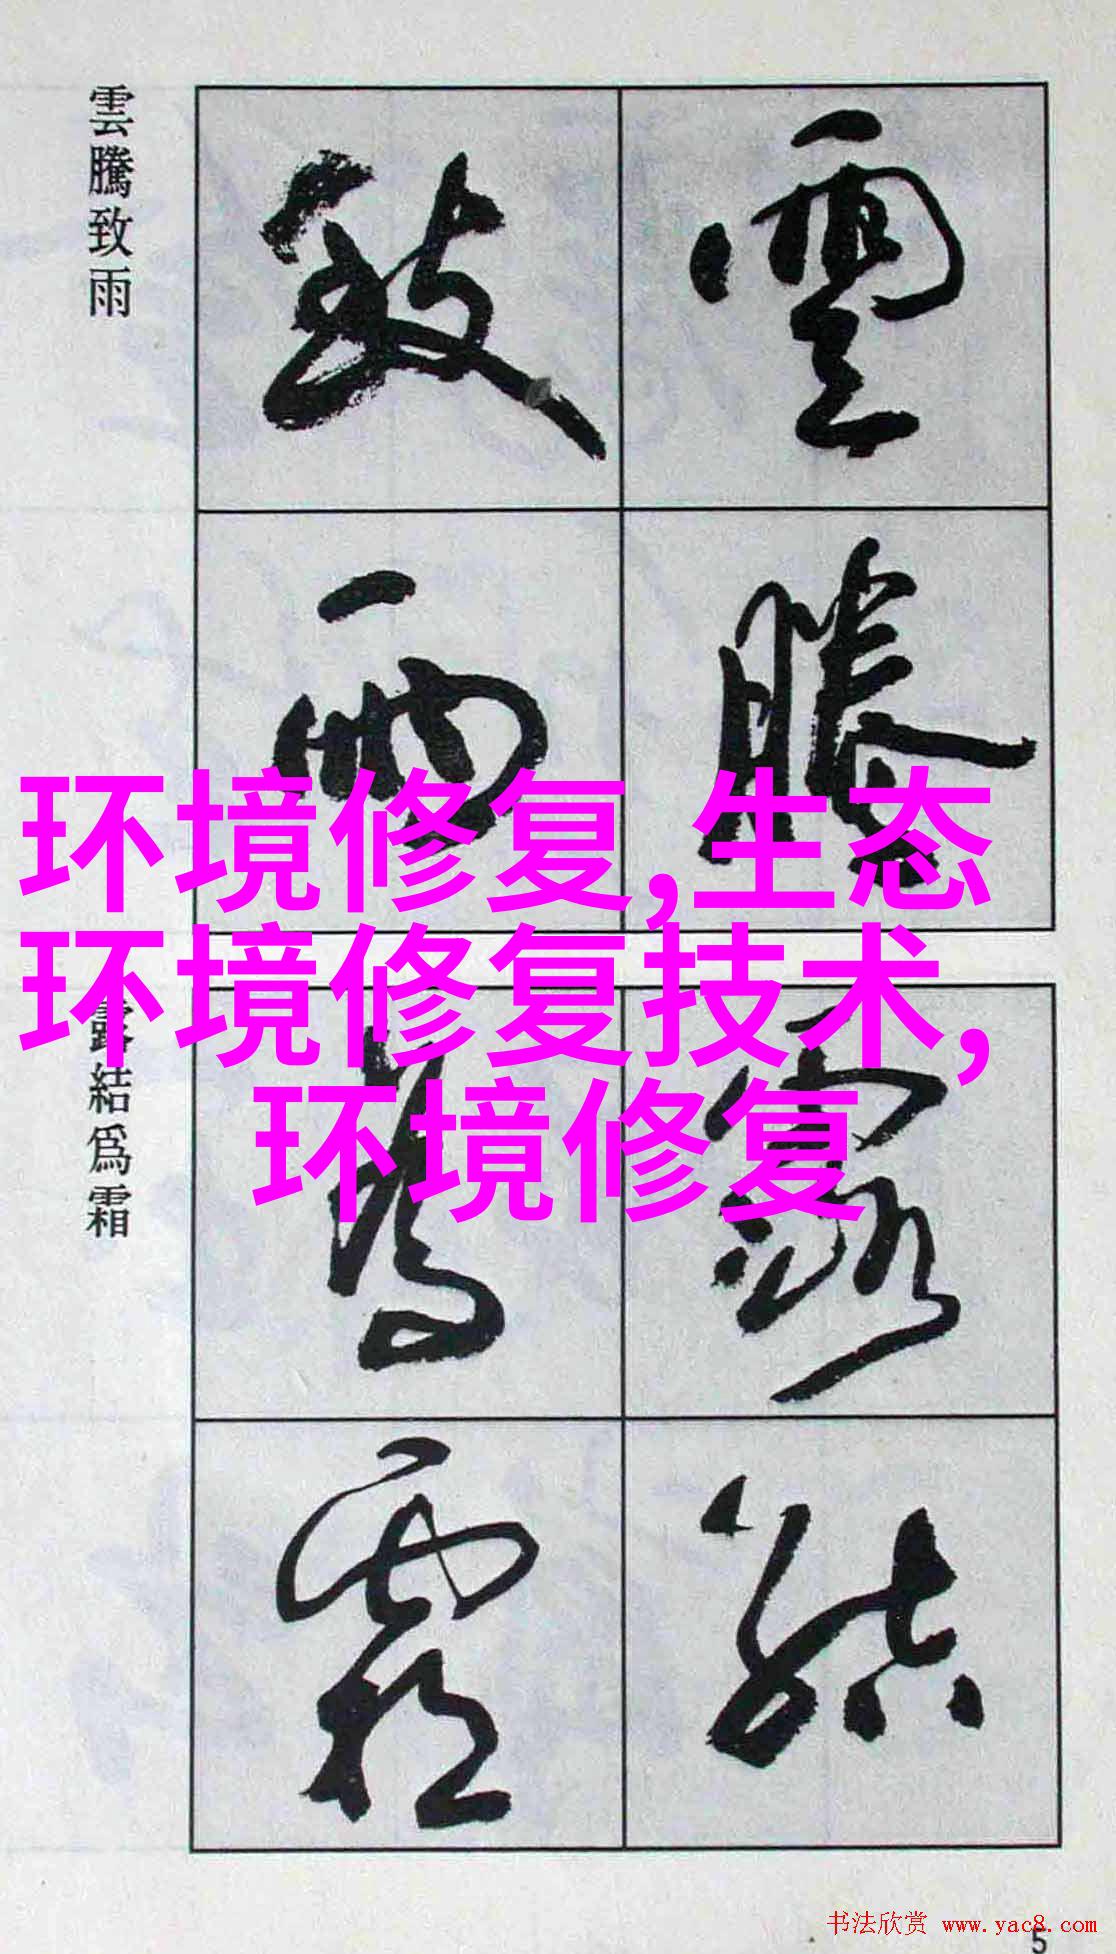 雲騰致雨
雲
騰
致
雨
环境修复,生态
环境修复技术,
环境修复
露結為霜
露
結
為
霜
书法欣赏 www.yac8.com
5